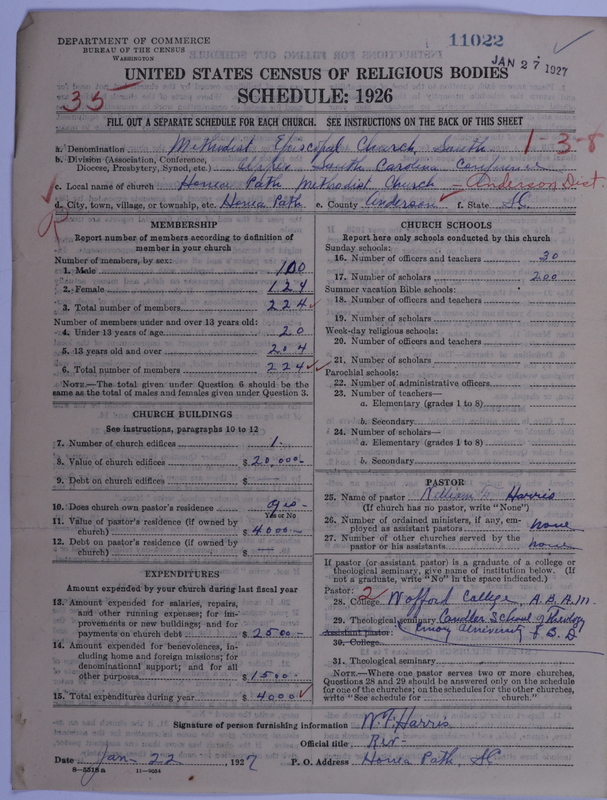 DEPARTMENT OF COMMERCE
BUREAU OF THE CENSUS
WASHINGTON
11022
JAN 27 1927
UNITED STATES CENSUS OF RELIGIOUS BODIES
SCHEDULE: 1926
35
FILL OUT A SEPARATE SCHEDULE FOR EACH CHURCH. SEE INSTRUCTIONS ON THE BACK OF THIS SHEET
1-3-8
a. Denomination Methodist Episcopal Church, South
b. Division (Association, Conference,
Diocese, Presbytery, Synod, etc.) Upper South Carolina Conference
c. Local name of church Honea Path Methodist Church - Anderson Dist
d. City, town, village, or township, etc. Honea Path. e. County Anderson f. State S.C.
MEMBERSHIP
Report number of members according to definition of
member in your church
Number of members, by sex:
1. Male 100
2. Female 124
3. Total number of members 224
Number of members under and over 13 years old:
4. Under 13 years of age 20
5. 13 years old and over 204
6. Total number of members 224
NOTE.—The total given under Question 6 should be the
same as the total of males and females given under Question 3.
CHURCH BUILDINGS
See instructions, paragraphs 10 to 12
7. Number of church edifices 1-
8. Value of church edifices $ 20,000-
9. Debt on church edifices $
10. Does church own pastor's residence yes-
Yes or No
11. Value of pastor's residence (if owned by
church) $ 4000-
12. Debt on pastor's residence (if owned by
church) $ —
EXPENDITURES
Amount expended by your church during last fiscal year
13. Amount expended for salaries, repairs,
and other running expenses; for im-
provements or new buildings; and for
payments on church debt $ 2500-
14. Amount expended for benevolences, in-
cluding home and foreign missions; for
denominational support; and for all
other purposes $ 1500-
15. Total expenditures during year $ 4000
CHURCH SCHOOLS
Report here only schools conducted by this church
Sunday schools:
16. Number of officers and teachers 20
17. Number of scholars 200
Summer vacation Bible schools:
18. Number of officers and teachers
19. Number of scholars
Week-day religious schools:
20. Number of officers and teachers
21. Number of scholars
Parochial schools:
22. Number of administrative officers
23. Number of teachers—
a. Elementary (grades 1 to 8)
b. Secondary
24. Number of scholars—
a. Elementary (grades 1 to 8)
b. Secondary
PASTOR
25. Name of pastor William F. Harris
(If church has no pastor, write "None")
26. Number of ordained ministers, if any, em-
ployed as assistant pastors none
27. Number of other churches served by the
pastor or his assistants none
If pastor (or assistant pastor) is a graduate of a college or
theological seminary, give name of institution below. (If
not a graduate, write "No" in the space indicated.)
Pastor: 2
28. College Wofford College, A.B., A.M.
29. Theological seminary Candler School of Theology
Assistant pastor: Emory University B. D
30. College
31. Theological seminary
NOTE.—Where one pastor serves two or more churches,
Questions 28 and 29 should be answered only on the schedule
for one of the churches; on the schedules for the other churches,
write "See schedule for church."
Signature of person furnishing information W.F. Harris
Official title Rev-
Date Jan- 22, 1927 P. O. Address Honea Path, S.C.
8-5518a 11-9024